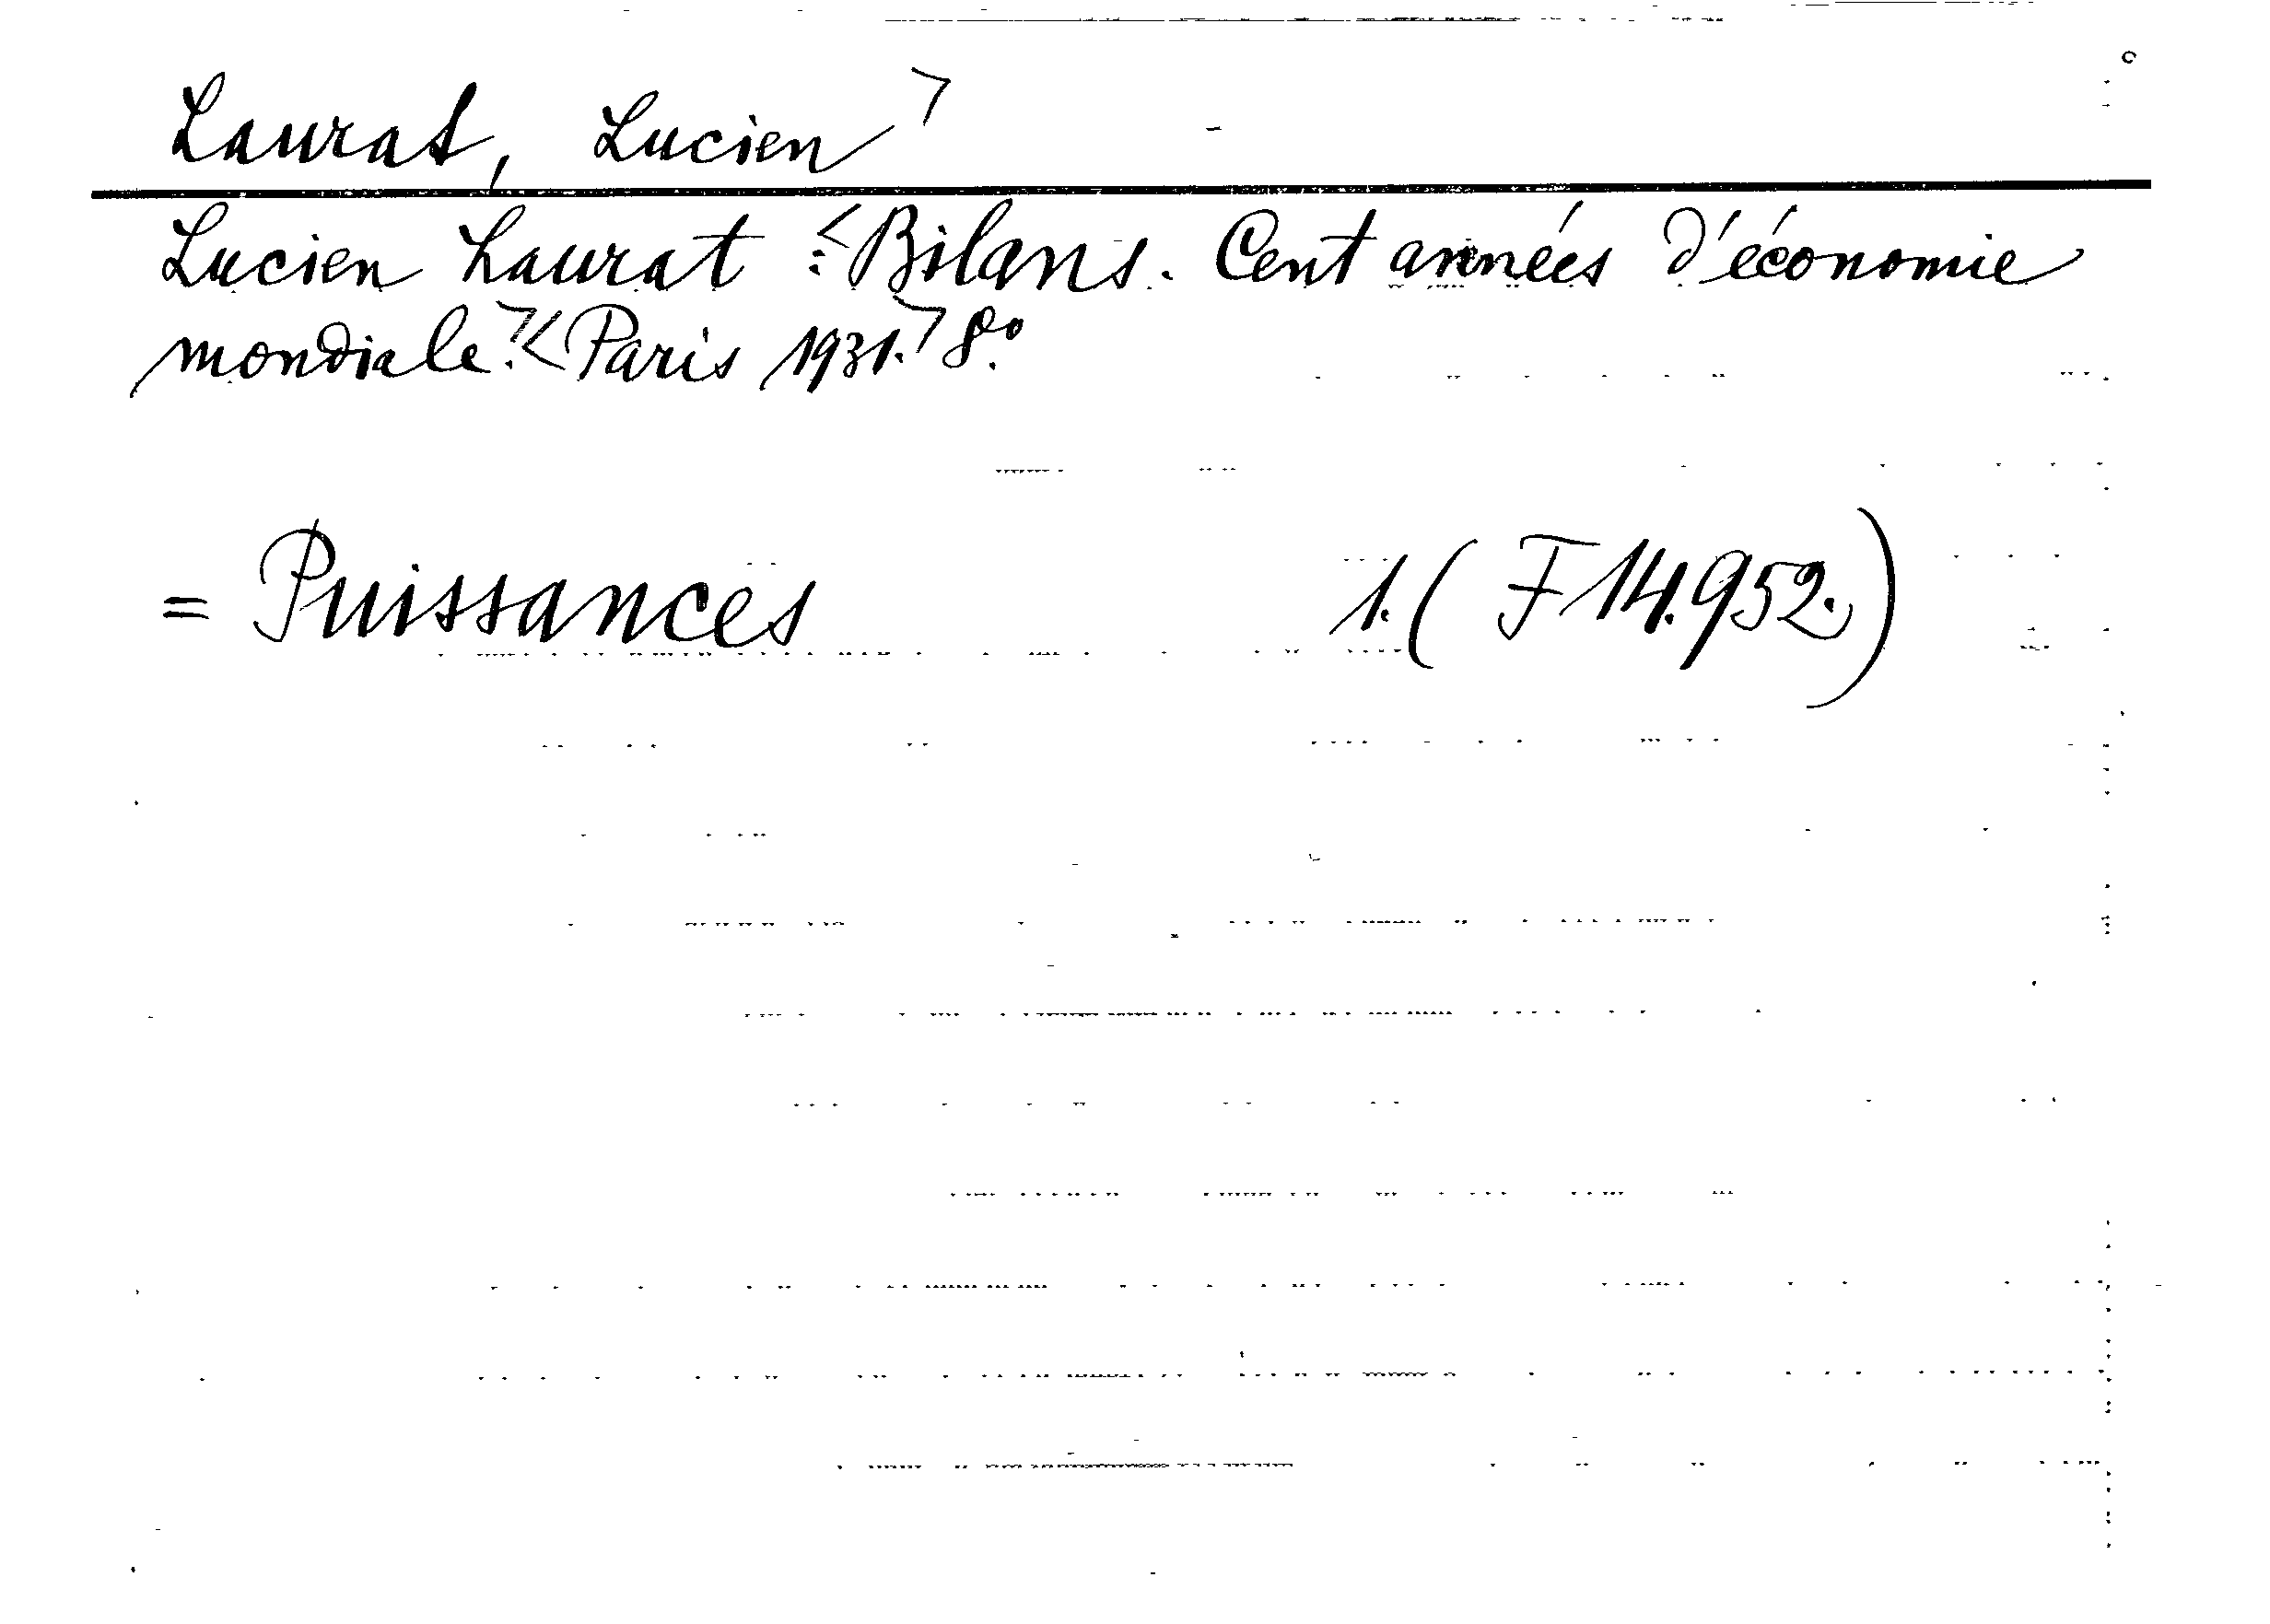 Laurat, Lucien >
Lucien Laurat :< Bilans. Cent années d'économie
mondiale.>< Paris 1931.> 8.º
= Puissances 1. ( F 14.952.)